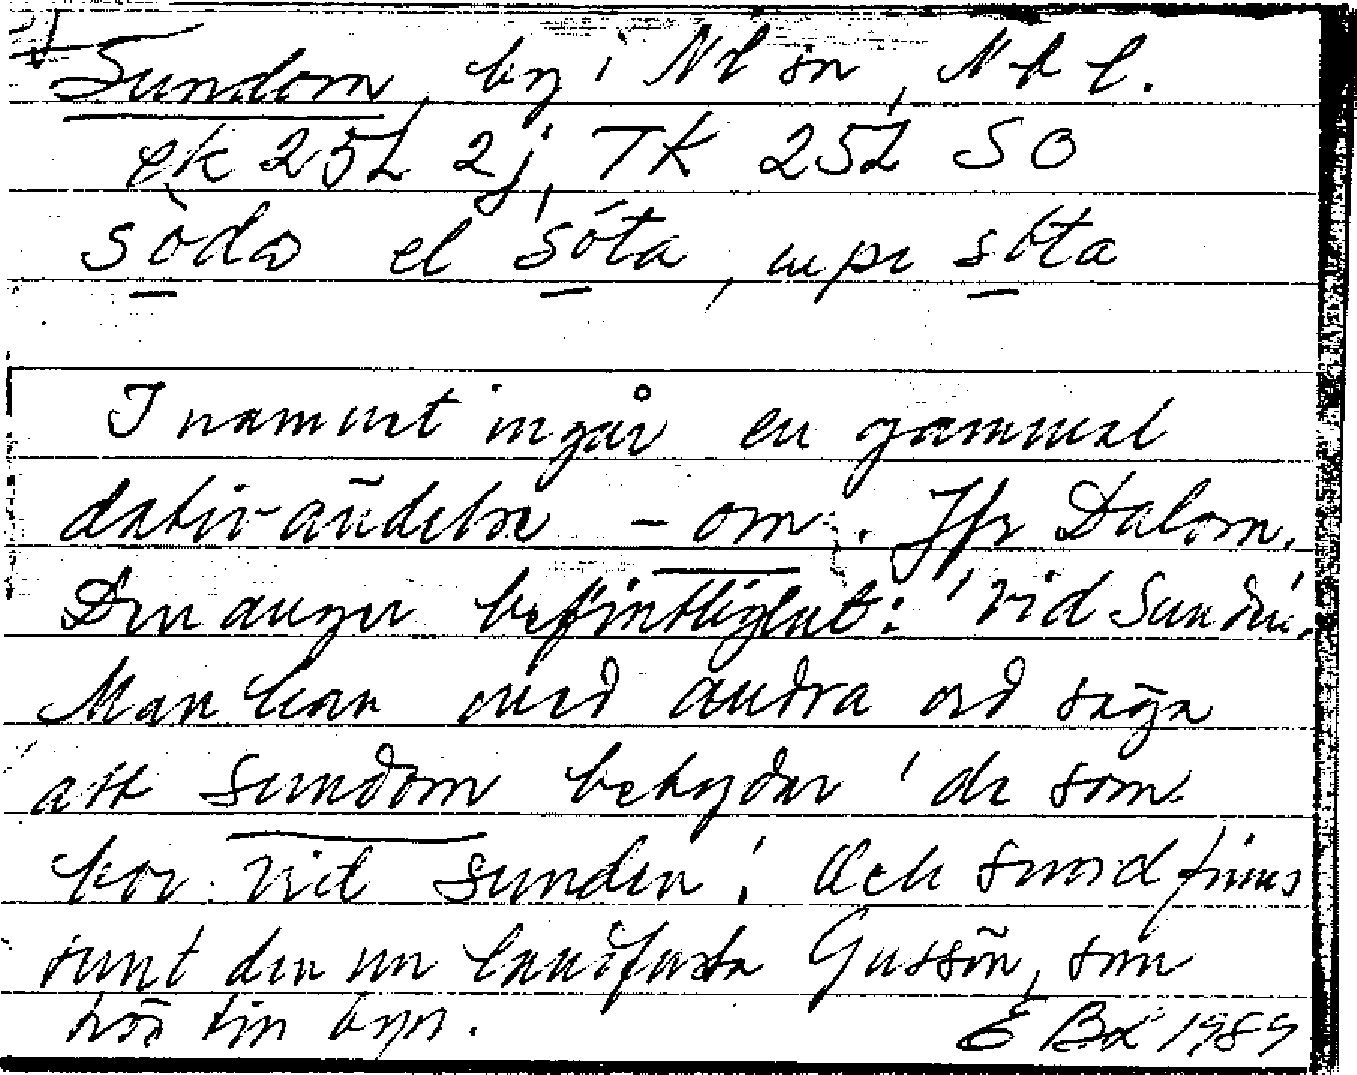 Sundom, by i Nl sn, Nbl.
ek 25L 2j, TK 25L SO
el sóta, sóta
I namnet ingår en gammal
dativändelse -om. Jfr Dalom.
Den anger befintlighet: 'vid Sunden'.
Man kan med andra ord säga
att Sundom betyder 'de som
bor vid sunden'. Och sund finns
runt den nu landfasta Gussön, som
hör till byn.
E Bd 1989